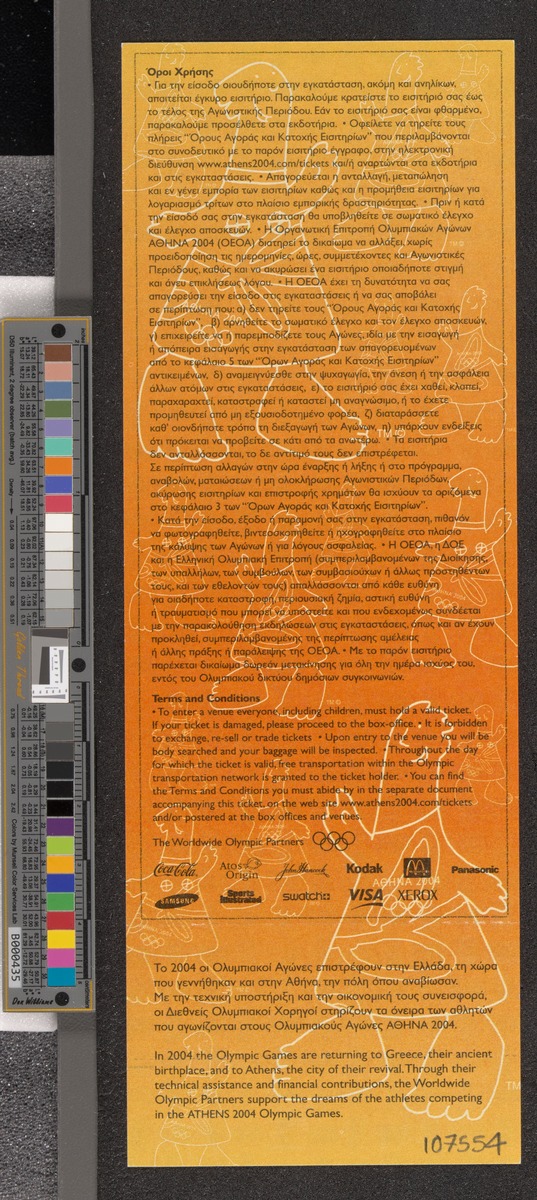 Όροι Χρήσης
• Για την είσοδο οιουδήποτε στην εγκατάσταση, ακόμη και ανηλίκων,
απαιτείται έγκυρο εισιτήριο. Παρακαλούμε κρατείστε το εισιτήριό σας έως
το τέλος της Αγωνιστικής Περιόδου. Εάν το εισιτήριό σας είναι φθαρμένο,
παρακαλούμε προσέλθετε στα εκδοτήρια. • Οφείλετε να τηρείτε τους
πλήρεις "Όρους Αγοράς και Κατοχής Εισιτηρίων" που περιλαμβάνονται
στο συνοδευτικό με το παρόν εισιτήριο έγγραφο, στην ηλεκτρονική
διεύθυνση www.athens2004.com/tickets και/ή αναρτώνται στα εκδοτήρια
και στις εγκαταστάσεις. • Απαγορεύεται η ανταλλαγή, μεταπώληση
και εν γένει εμπορία των εισιτηρίων καθώς και η προμήθεια εισιτηρίων για
λογαριασμό τρίτων στο πλαίσιο εμπορικής δραστηριότητας. • Πριν ή κατά
την είσοδό σας στην εγκατάσταση θα υποβληθείτε σε σωματικό έλεγχο
και έλεγχο αποσκευών. • Η Οργανωτική Επιτροπή Ολυμπιακών Αγώνων
ΑΘΗΝΑ 2004 (ΟΕΟΑ) διατηρεί το δικαίωμα να αλλάξει, χωρίς
προειδοποίηση τις ημερομηνίες, ώρες, συμμετέχοντες και Αγωνιστικές
Περιόδους, καθώς και να ακυρώσει ένα εισιτήριο οποιαδήποτε στιγμή
και άνευ επικλήσεως λόγου. • Η ΟΕΟΑ έχει τη δυνατότητα να σας
απαγορεύσει την είσοδο στις εγκαταστάσεις ή να σας αποβάλει
σε περίπτωση που: α) δεν τηρείτε τους "Όρους Αγοράς και Κατοχής
Εισιτηρίων", β) αρνηθείτε το σωματικό έλεγχο και τον έλεγχο αποσκευών,
γ) επιχειρείτε να παρεμποδίζετε τους Αγώνες, ιδία με την εισαγωγή
ή απόπειρα εισαγωγής στην εγκατάσταση των απαγορευμένων
από το κεφάλαιο 5 των "Όρων Αγοράς και Κατοχής Εισιτηρίων"
αντικειμένων, δ) αναμειγνύεσθε στην ψυχαγωγία, την άνεση ή την ασφάλεια
άλλων ατόμων στις εγκαταστάσεις, ε) το εισιτήριό σας έχει χαθεί, κλαπεί,
παραχαραχτεί, καταστραφεί ή καταστεί μη αναγνώσιμο, ή το έχετε
προμηθευτεί από μη εξουσιοδοτημένο φορέα, ζ) διαταράσσετε
καθ' οιονδήποτε τρόπο τη διεξαγωγή των Αγώνων, η) υπάρχουν ενδείξεις
ότι πρόκειται να προβείτε σε κάτι από τα ανωτέρω. • Τα εισιτήρια
δεν ανταλλάσσονται, το δε αντίτιμό τους δεν επιστρέφεται.
Σε περίπτωση αλλαγών στην ώρα έναρξης ή λήξης ή στο πρόγραμμα,
αναβολών, ματαιώσεων ή μη ολοκλήρωσης Αγωνιστικών Περιόδων,
ακύρωσης εισιτηρίων και επιστροφής χρημάτων θα ισχύουν τα οριζόμενα
στο κεφάλαιο 3 των "Όρων Αγοράς και Κατοχής Εισιτηρίων".
• Κατά την είσοδο, έξοδο ή παραμονή σας στην εγκατάσταση, πιθανόν
να φωτογραφηθείτε, βιντεοσκοπηθείτε ή ηχογραφηθείτε στο πλαίσιο
της κάλυψης των Αγώνων ή για λόγους ασφαλείας. • Η ΟΕΟΑ, η ΔΟΕ
και η Ελληνική Ολυμπιακή Επιτροπή (συμπεριλαμβανομένης της Διοίκησης,
των υπαλλήλων, των συμβούλων, των συμβασιούχων ή άλλως προστηθέντων
τους, και των εθελοντών τους) απαλλάσσονται από κάθε ευθύνη
για οιαδήποτε καταστροφή, περιουσιακή ζημία, αστική ευθύνη
ή τραυματισμό που μπορεί να υποστείτε και που ενδεχομένως συνδέεται
με την παρακολούθηση εκδηλώσεων στις εγκαταστάσεις, όπως και αν έχουν
προκληθεί, συμπεριλαμβανομένης της περίπτωσης αμέλειας
ή άλλης πράξης ή παράλειψης της ΟΕΟΑ. • Με το παρόν εισιτήριο
παρέχεται δικαίωμα δωρεάν μετακίνησης για όλη την ημέρα ισχύος του,
εντός του Ολυμπιακού δικτύου δημόσιων συγκοινωνιών.
Terms and Conditions
• To enter a venue everyone, including children, must hold a valid ticket.
If your ticket is damaged, please proceed to the box-office. • It is forbidden
to exchange, re-sell or trade tickets • Upon entry to the venue you will be
body searched and your baggage will be inspected. • Throughout the day
for which the ticket is valid, free transportation within the Olympic
transportation network is granted to the ticket holder. • You can find
the Terms and Conditions you must abide by in the separate document
accompanying this ticket, on the web site www.athens2004.com/tickets
and/or postered at the box offices and venues.
The Worldwide Olympic Partners
Coca-Cola Atos Origin John Hancock Kodak M Panasonic
ΑΘΗΝΑ 2004
SAMSUNG Sports Illustrated swatch VISA XEROX
Το 2004 οι Ολυμπιακοί Αγώνες επιστρέφουν στην Ελλάδα, τη χώρα
που γεννήθηκαν και στην Αθήνα, την πόλη όπου αναβίωσαν.
Με την τεχνική υποστήριξη και την οικονομική τους συνεισφορά,
οι Διεθνείς Ολυμπιακοί Χορηγοί στηρίζουν τα όνειρα των αθλητών
που αγωνίζονται στους Ολυμπιακούς Αγώνες ΑΘΗΝΑ 2004.
In 2004 the Olympic Games are returning to Greece, their ancient
birthplace, and to Athens, the city of their revival. Through their
technical assistance and financial contributions, the Worldwide
Olympic Partners support the dreams of the athletes competing
in the ATHENS 2004 Olympic Games.
107554
B000435
Don Williams
Golden Thread
Colors by Munsell Color Services Lab